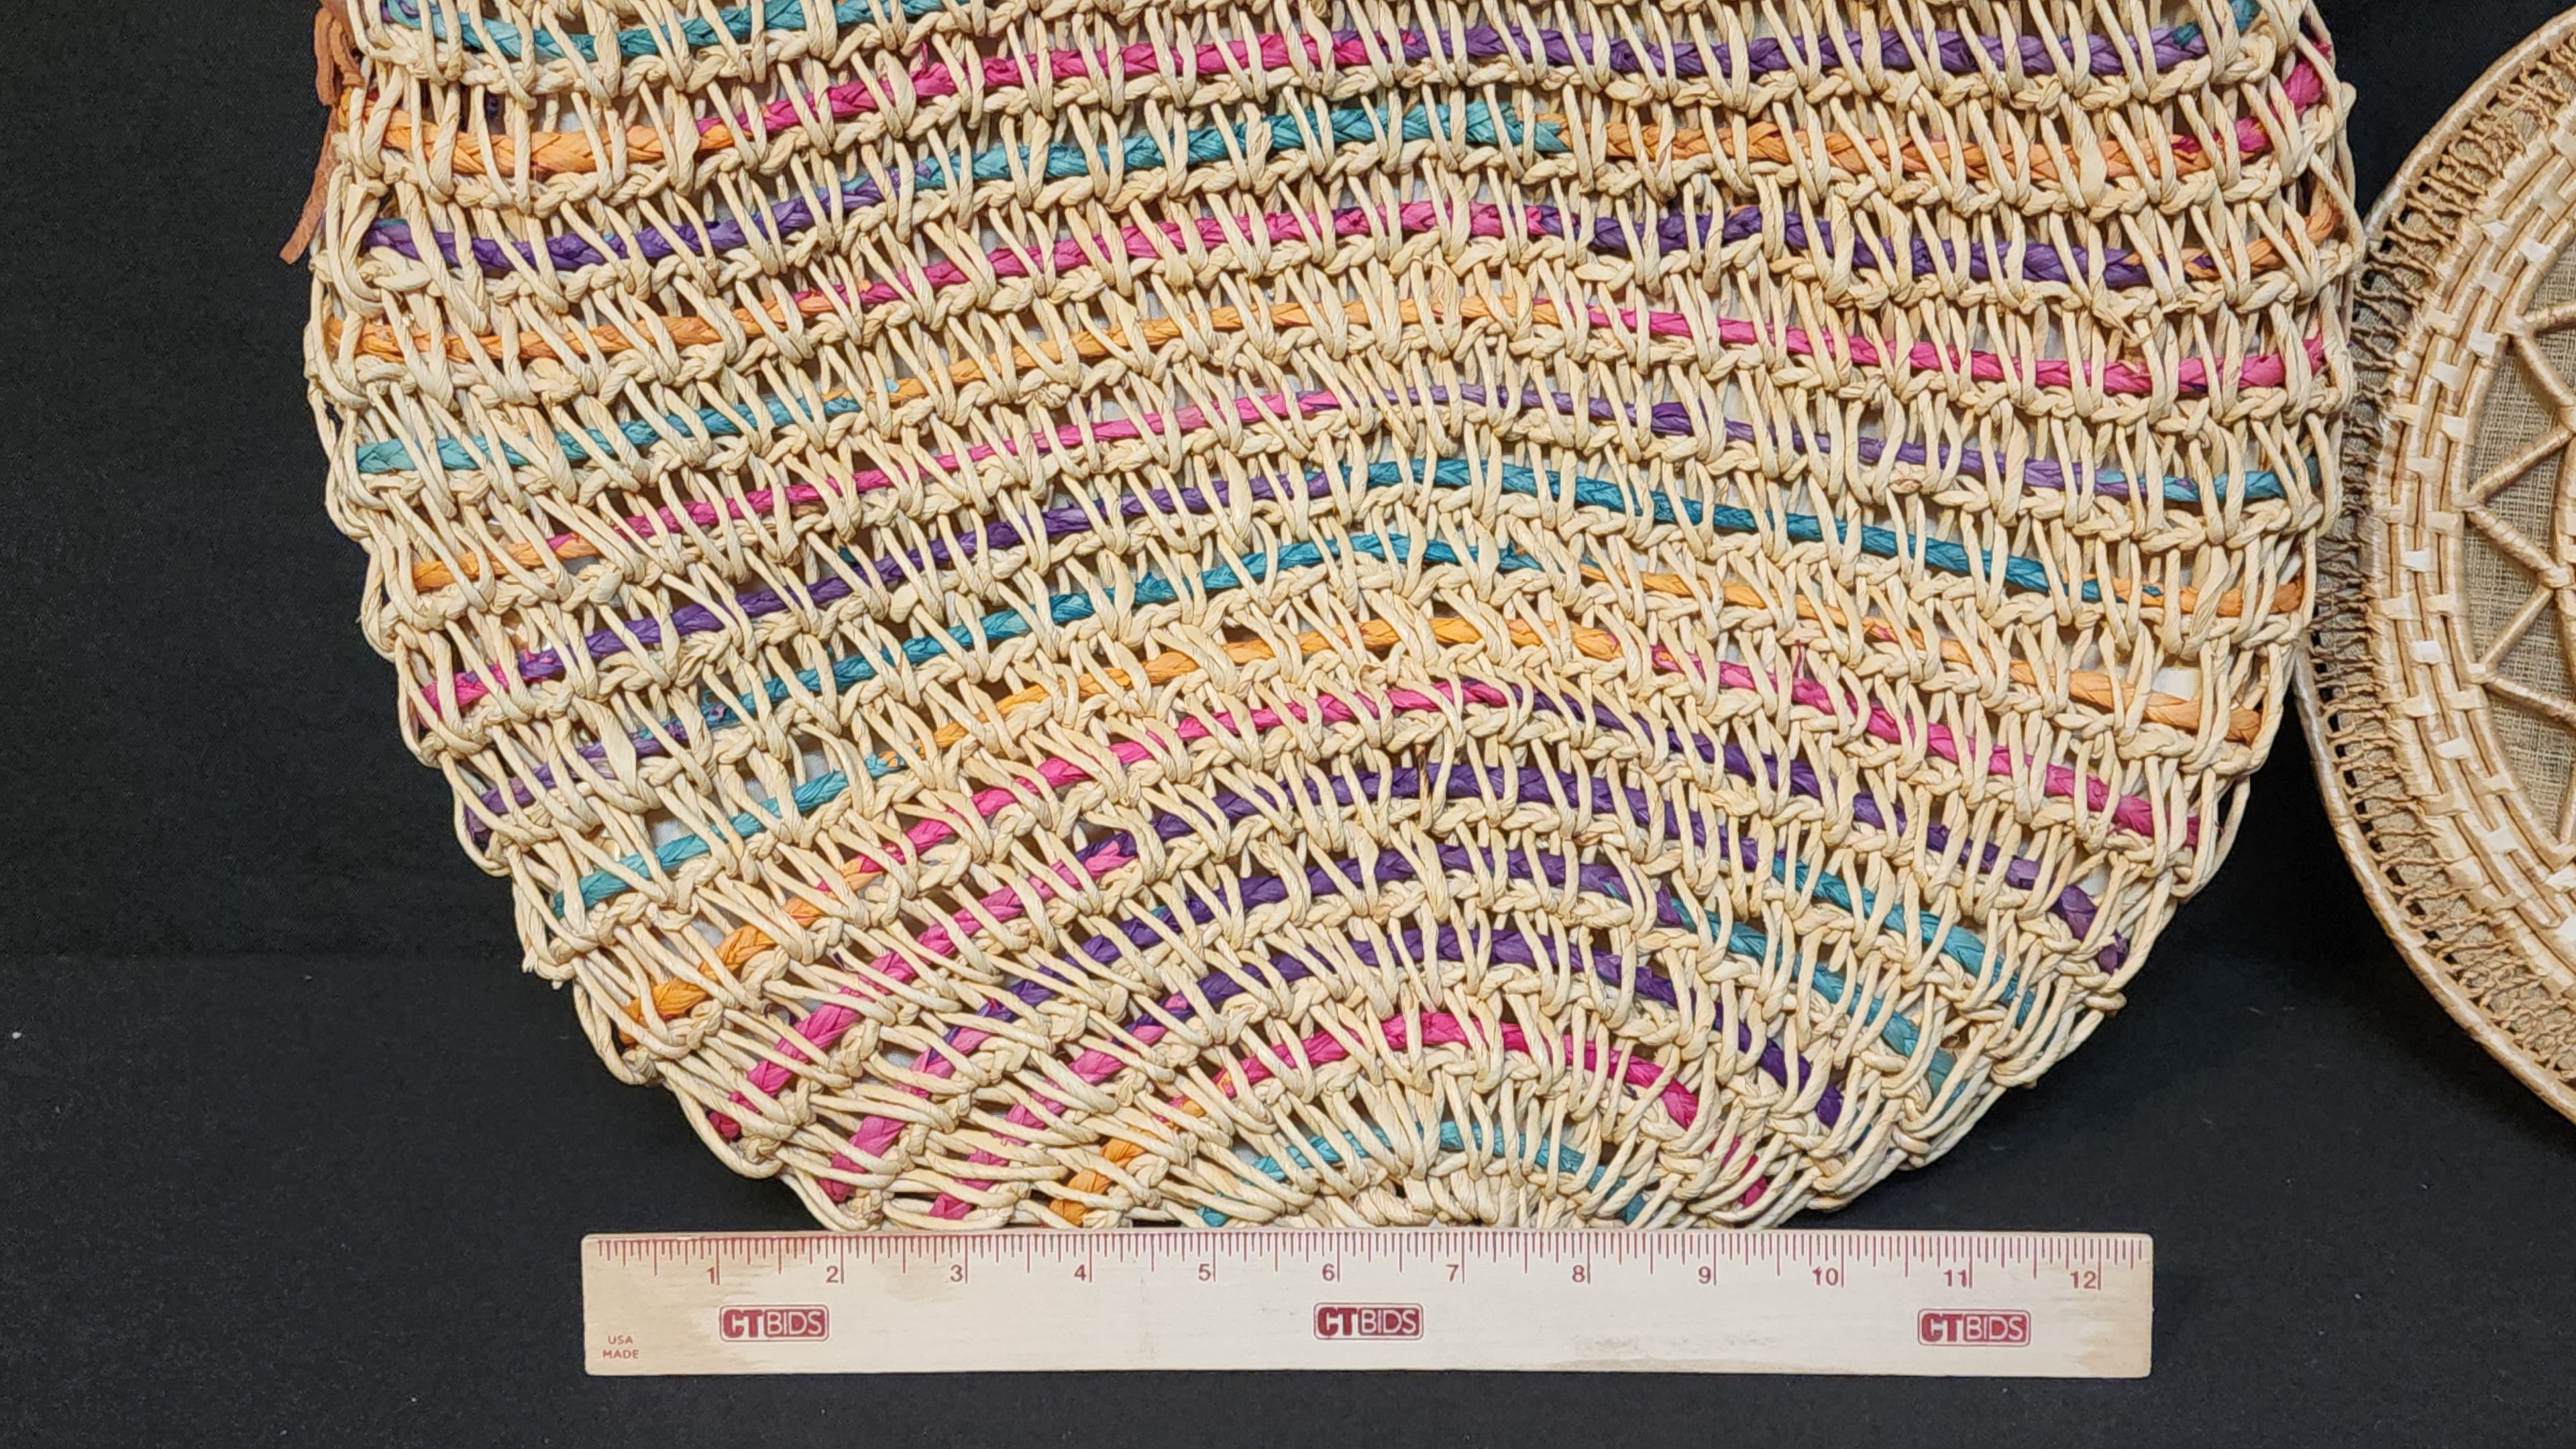 1 2 3 4 5 6 7 8 9 10 11 12
CTBIDS CTBIDS CTBIDS
USA
MADE